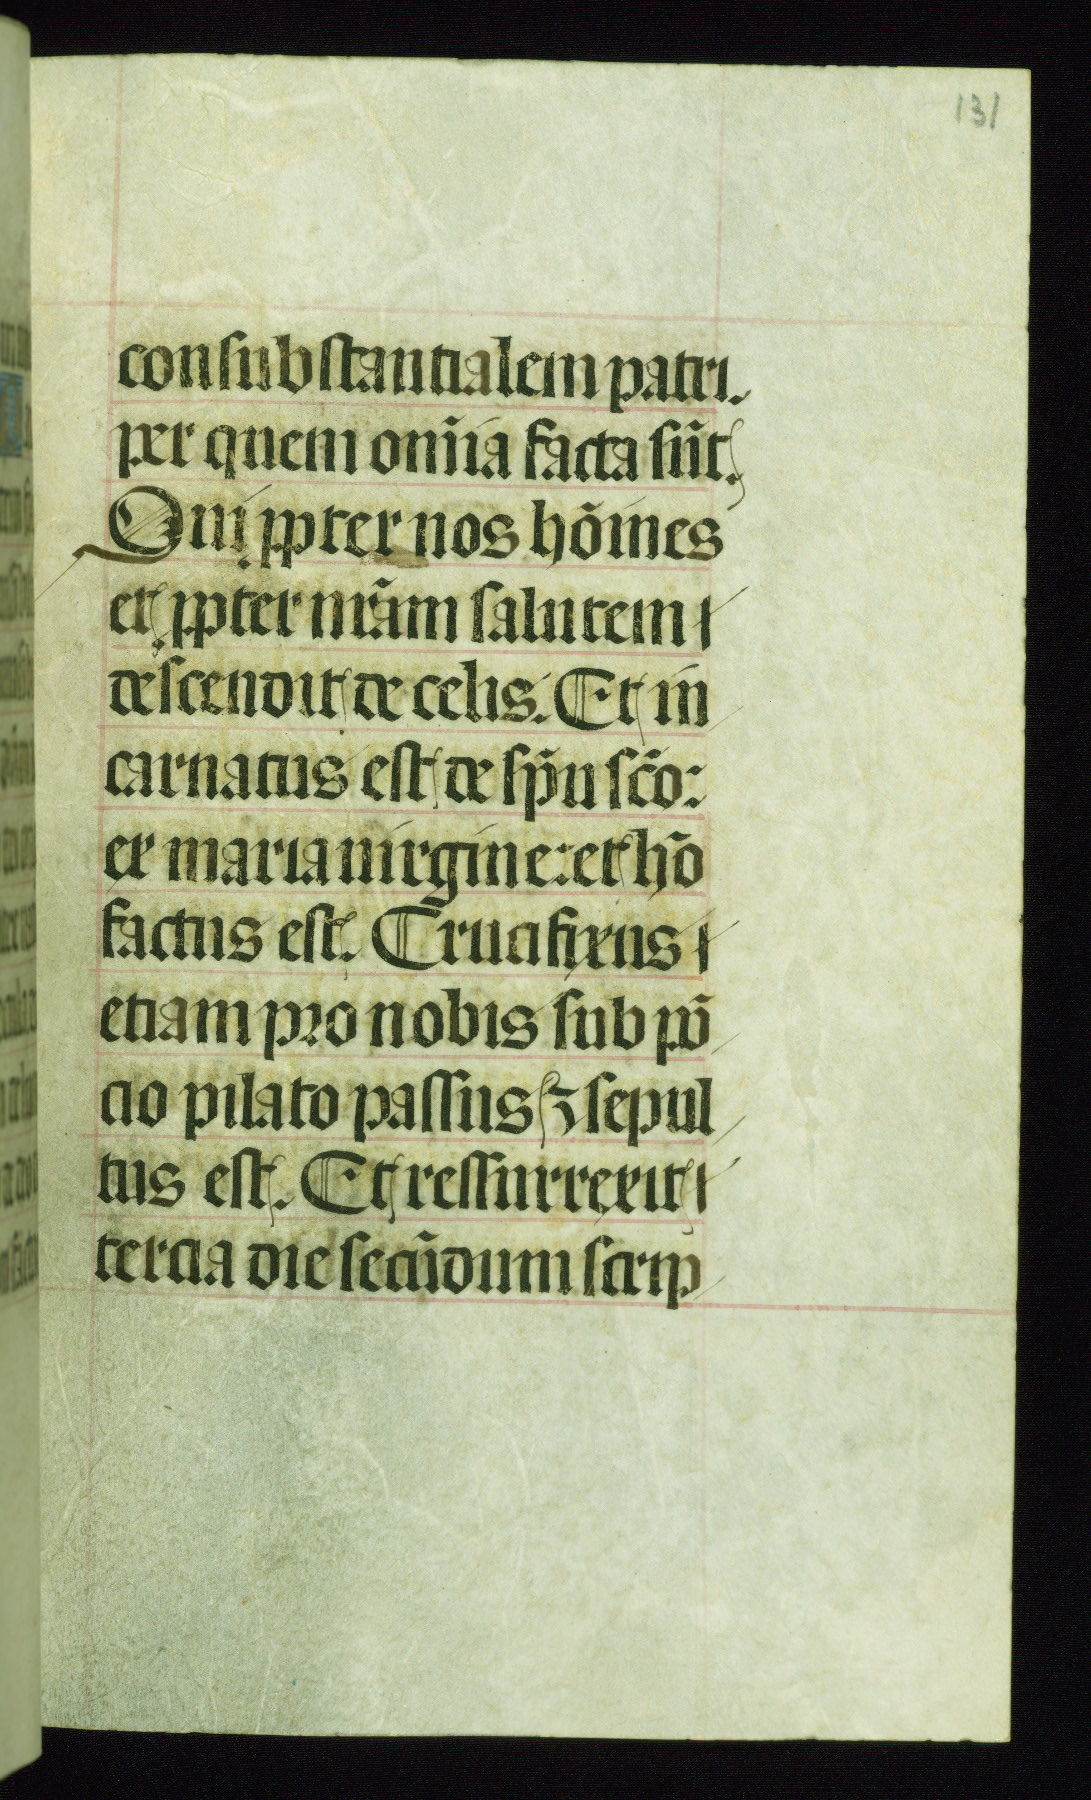 131
consubstantialem patri.
per quem om̄ia facta sūt.
Qui ꝓpter nos hōines
et ꝓpter nr̄am salutem
descendit de celis. Et in
carnatus est de sp̄u sc̄o:
ex maria uirgine: et hō
factus est. Crucifixus
etiam pro nobis sub pō
cio pilato passus ⁊ sepul
tus est. Et ressurrexit
tercia die secūdum scrip